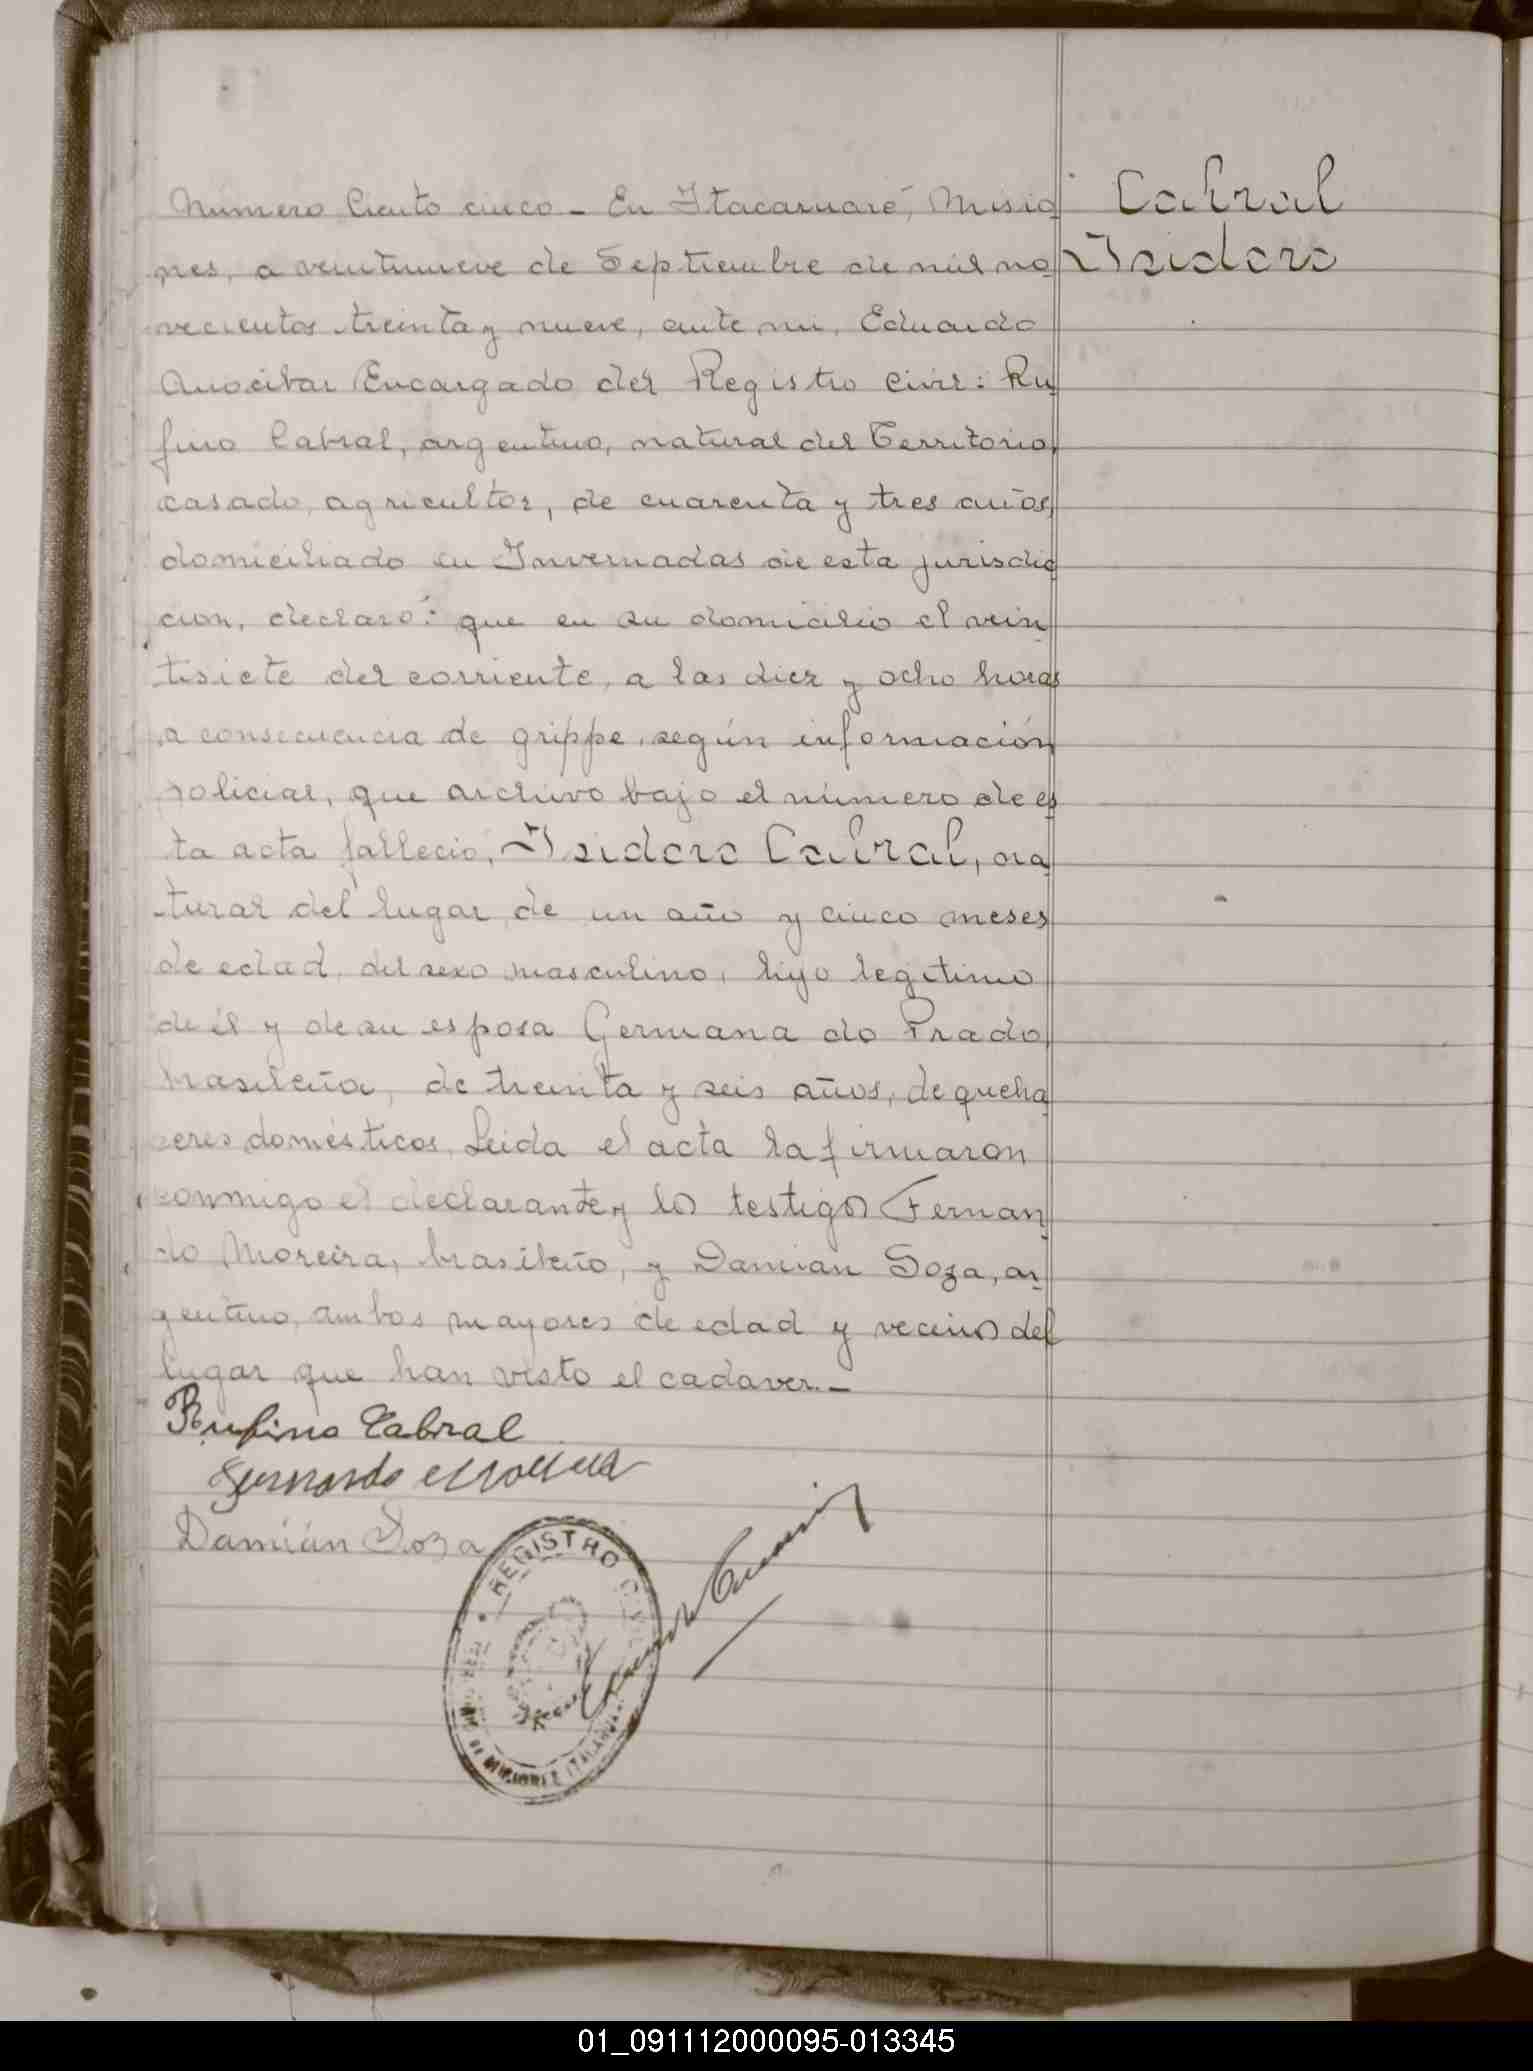 Número Ciento cinco - En Itacaruaré, Misio
nes, a veintinueve de Septiembre de mil no
vecientos treinta y nueve, ante mi, Eduardo
Encargado del Registro Civil: Ru
fino Cabral, argentino, natural del Territorio,
casado, agricultor, de cuarenta y tres años,
domiciliado en Invernadas de esta jurisdic
cion, declaró: que en su domicilio el vein
tisiete del corriente, a las diez y ocho horas
a consecuencia de grippe, según información
policial, que archivo bajo el número de es
ta acta falleció, Isidoro Cabral, na
tural del lugar, de un año y cinco meses
de edad, del sexo masculino, hijo legitimo
de él y de su esposa Germana do Prado,
brasileña, de treinta y seis años, de queha
ceres domésticos. Leida el acta la firmaron
conmigo el declarante y los testigos Fernan
do Moreira, brasileño, y Damian Soza, ar
gentino, ambos mayores de edad y vecinos del
lugar que han visto el cadaver.-
Cabral
Isidoro
Rufino Cabral
Fernando Moreira
Damián Soza
REGISTRO CIVIL
MISIONES ITACARUARE
01_091112000095-013345